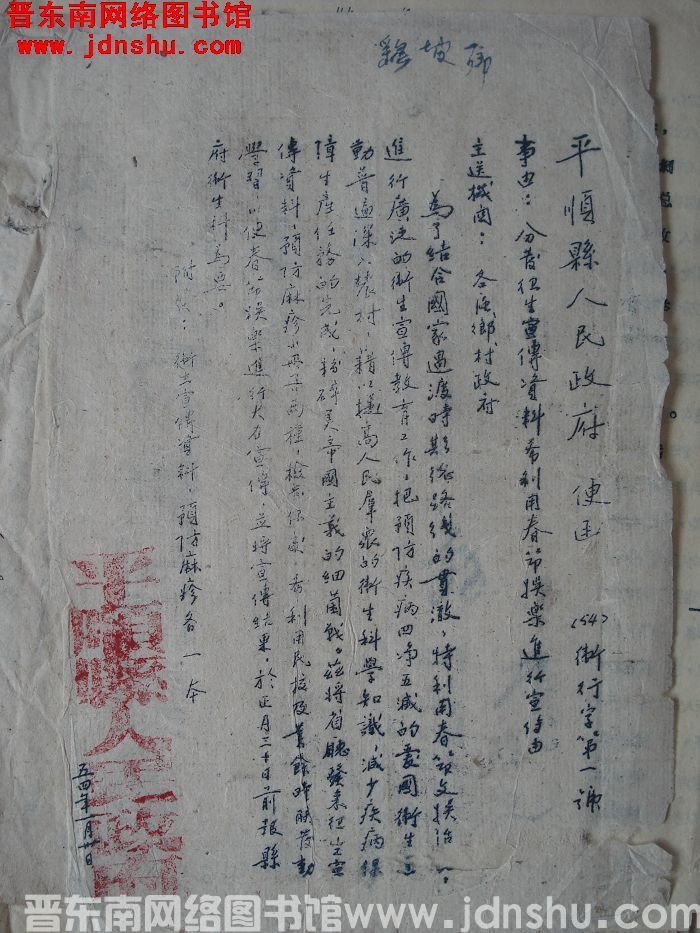 晋东南网络图书馆
www.jdnshu.com
坡鄉
平順縣人民政府 便函 (54)衛行字第一號
事由：分發衛生宣傳資料希利用春節娛樂進行宣傳由
主送機関：各區鄉村政府
為了結合國家過渡時期總路綫的貫澈，特利用春節文娛活
進行廣泛的衛生宣傳教育工作，把預防疾病四净五滅的愛國衛生
動普遍深入農村，藉以提高人民羣衆的衛生科學知識，減少疾病保
障生產任務的完成，粉碎美帝國主義的細菌戰。茲將省廳發來衛生宣
傳資料，預防麻疹小冊各兩種，檢希利用民校及業餘時間發動
學習，以便春節娛樂進行大力宣傳，並將宣傳結果，於正月二十日前報縣
府衛生科為要。
附發：衛生宣傳資料，預防麻疹各一本
平順縣人民政府
五四年一月日
晋东南网络图书馆www.jdnshu.com